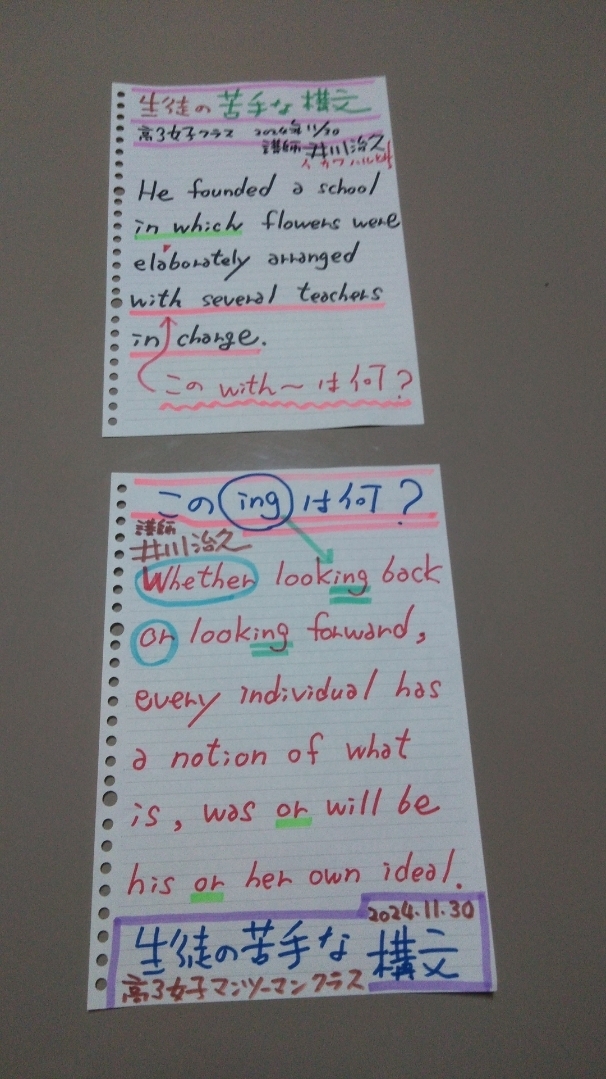 生徒の苦手な構文
高3女子クラス 2024年11/30
講師 井川治久
イカワハルヒサ
He founded a school
in which flowers were
elaborately arranged
with several teachers
in charge.
この with~は何?
この ing は何?
講師
井川治久
Whether looking back
or looking forward,
every individual has
a notion of what
is, was or will be
his or her own ideal.
2024.11.30
生徒の苦手な構文
高3女子マンツーマンクラス